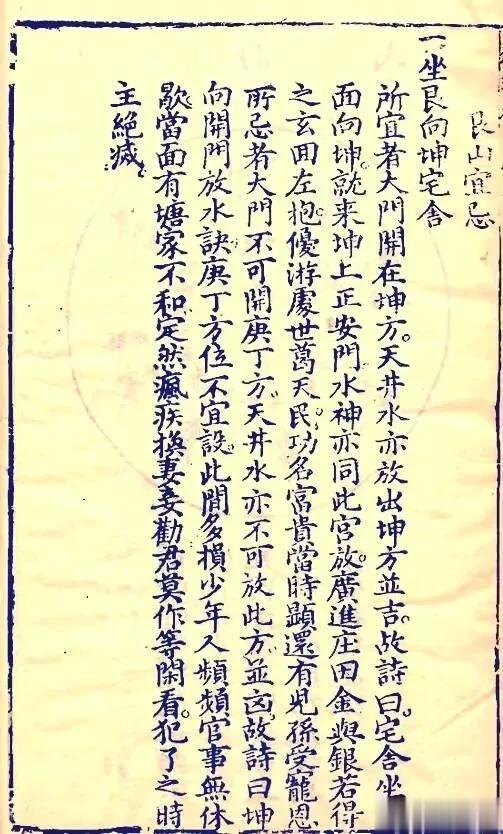 艮山宜忌
一坐艮向坤宅舍
所宜者大門開在坤方。天井水亦放出坤方並吉。故詩曰。宅舍坐
面向坤。就来坤上正安門水神亦同此宮放。廣進庄田金與銀若得
之玄田左抱。優游處世葛天民。功名富貴當時顯還有児孫受寵恩
所忌者大門不可開庚丁方。天井水亦不可放此方。並凶。故詩曰坤
向開門放水訣庚丁方位不宜設。此間多損少年人頻頻官事無休
歇當面有塘家不和定然瘋疾換妻妾勸君莫作等閑看。犯了之時
主絕滅